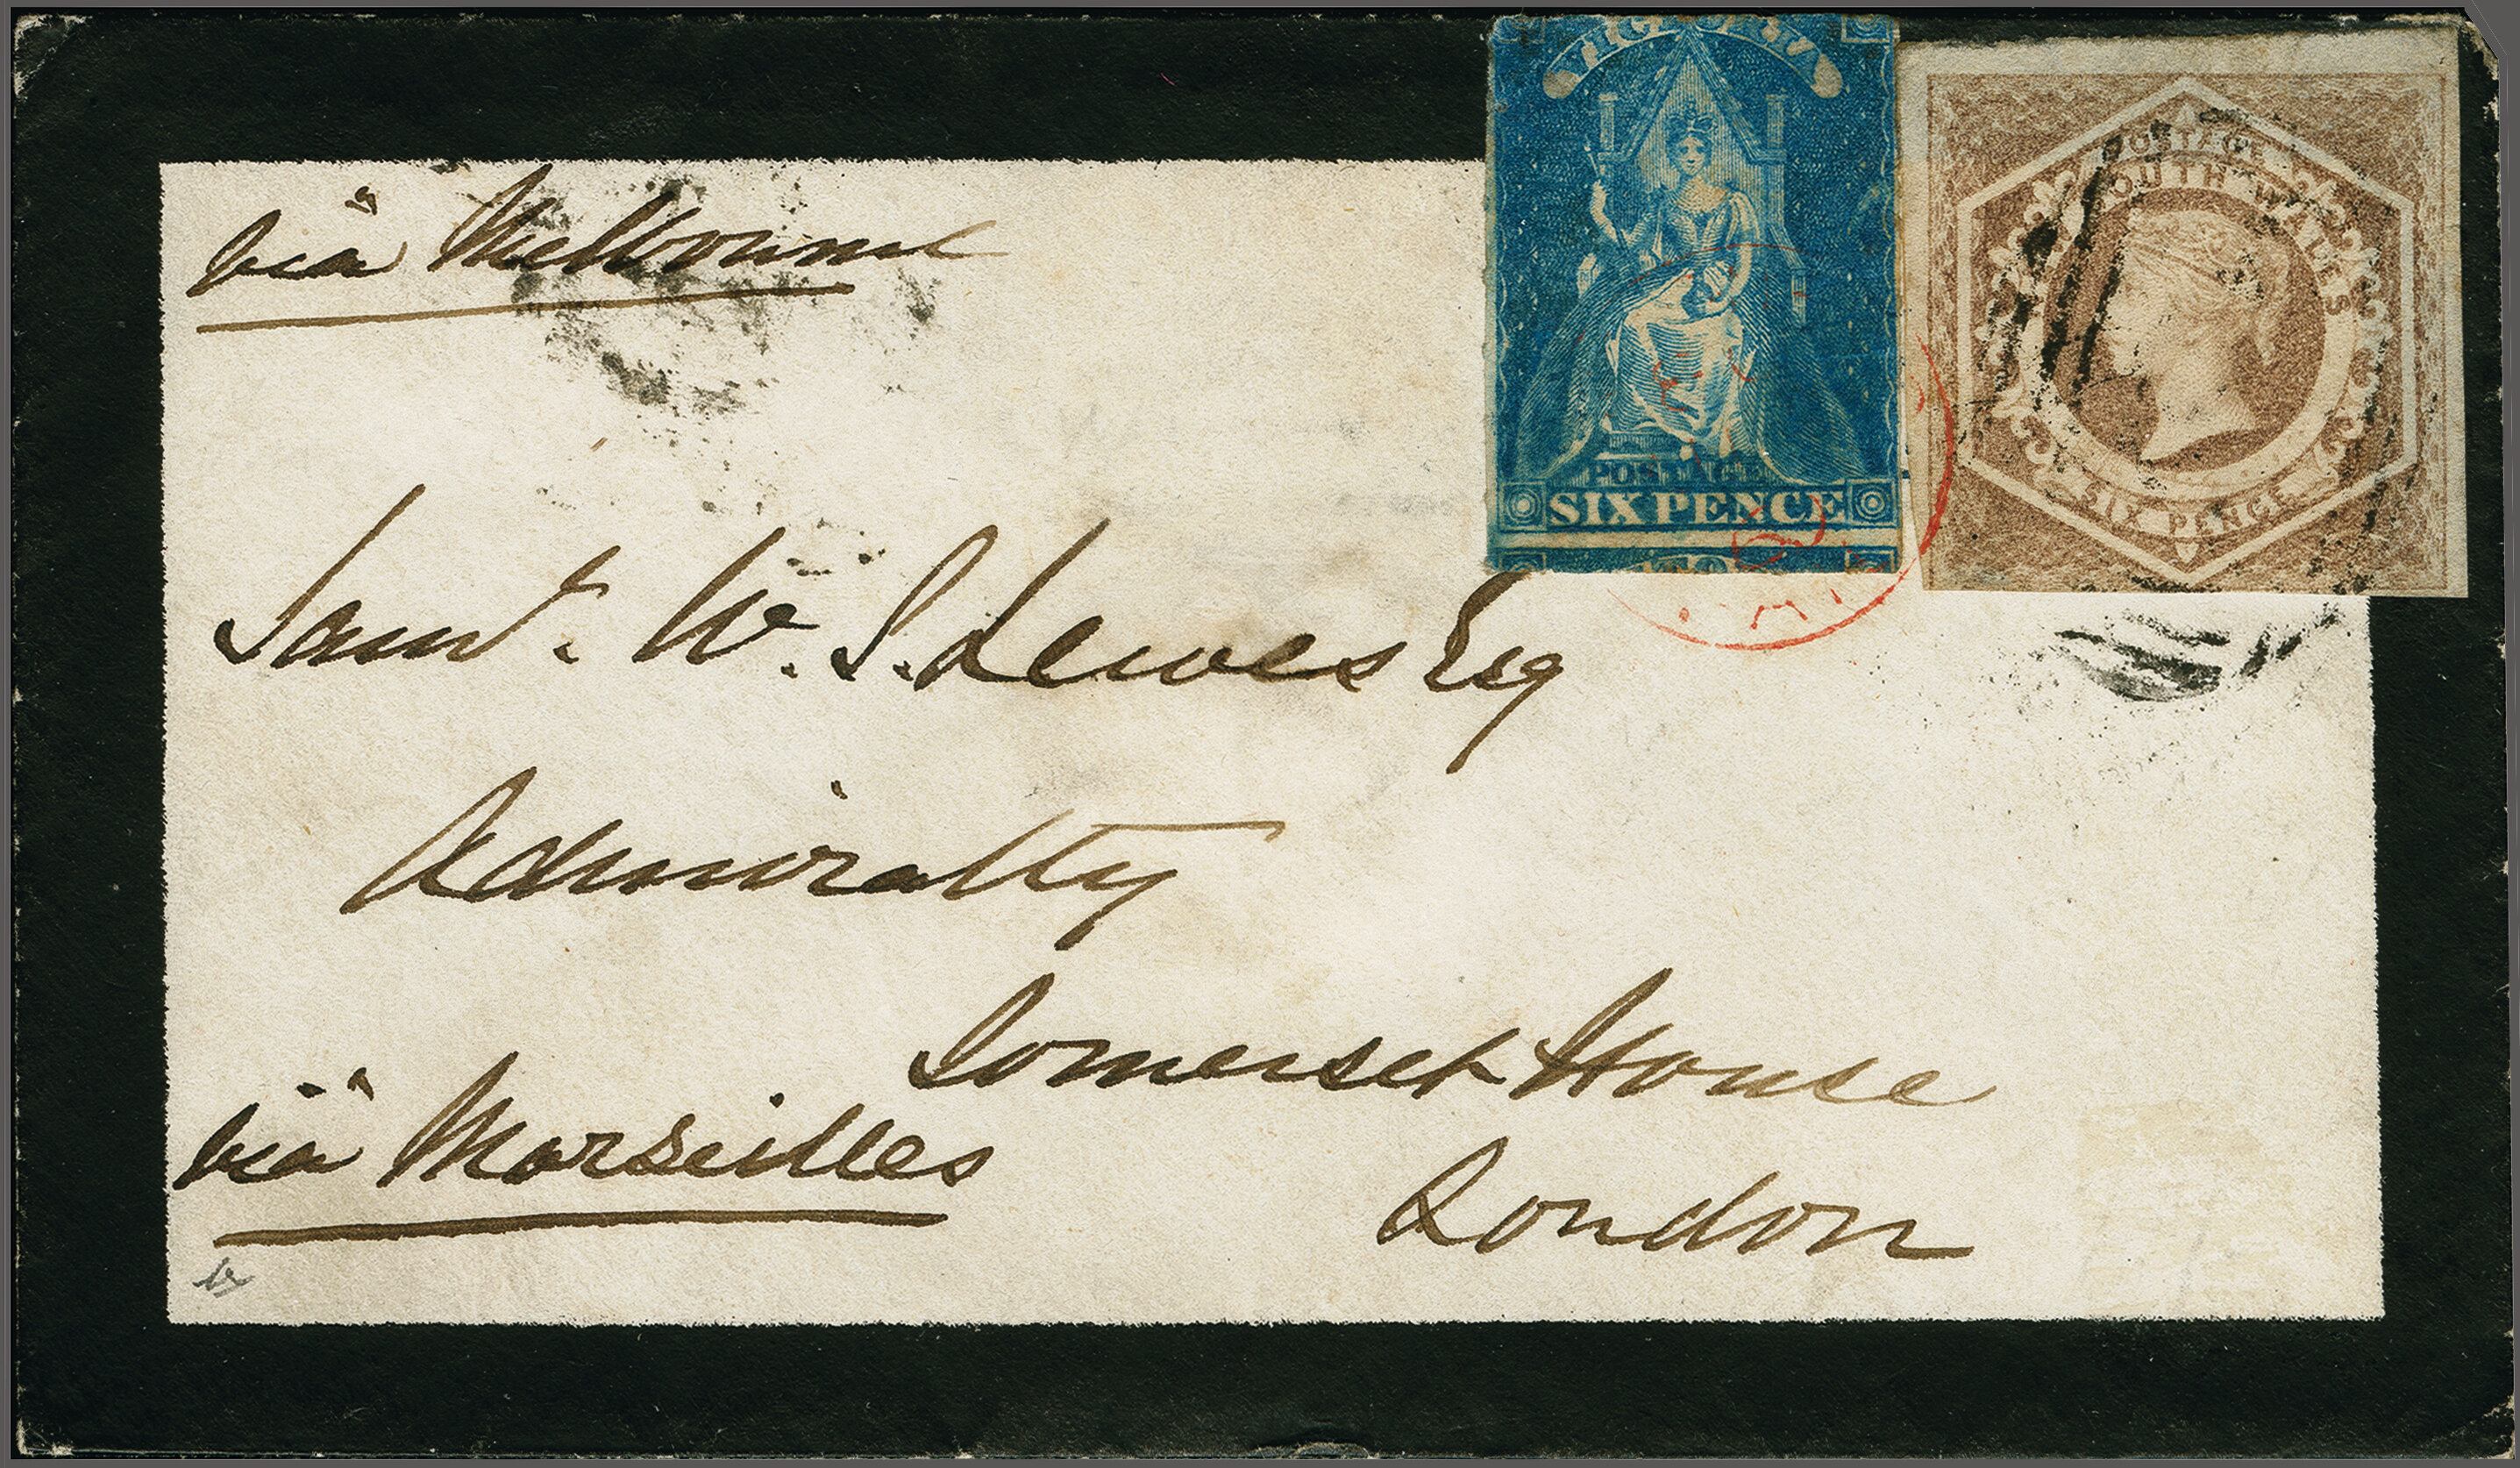 VICTORIA
POSTAGE
SIX PENCE
TO
POSTAGE
SOUTH WALES
SIX PENCE
viä Melbourne
Saml. W. S. Lewes Esq
Admiralty
Somerset House
viä Marseilles
London